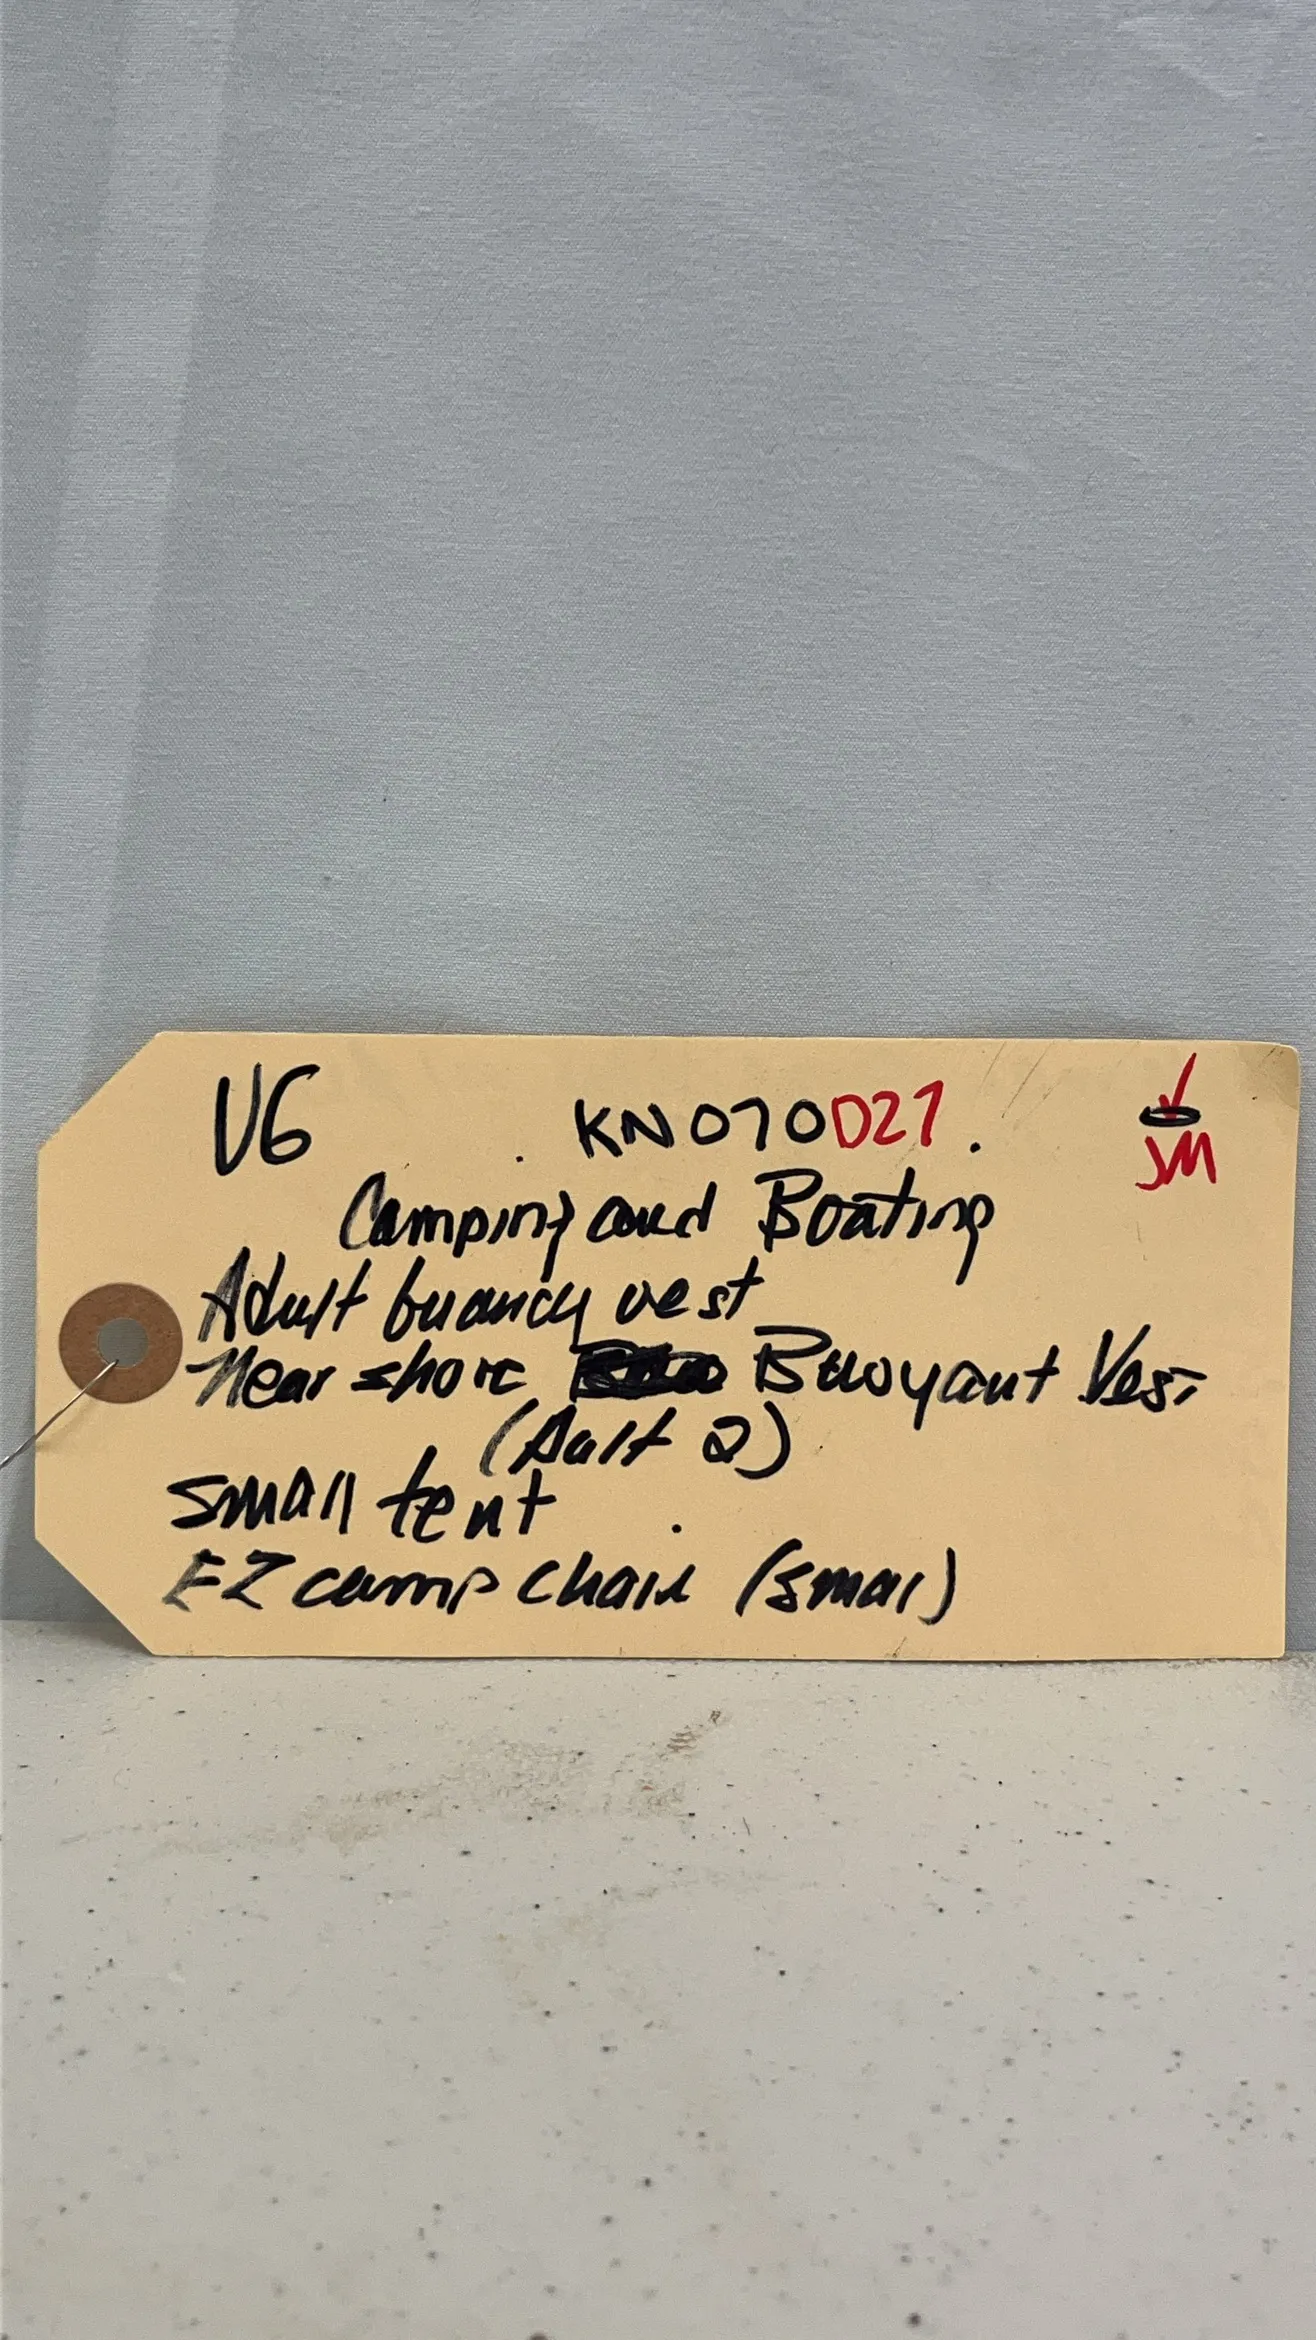 VG . KN070D27 .
JM
Camping and Boating
Adult buancy vest
Near shore Buoyant Vest
(Adult 2)
small tent
EZ camp chair (smal)